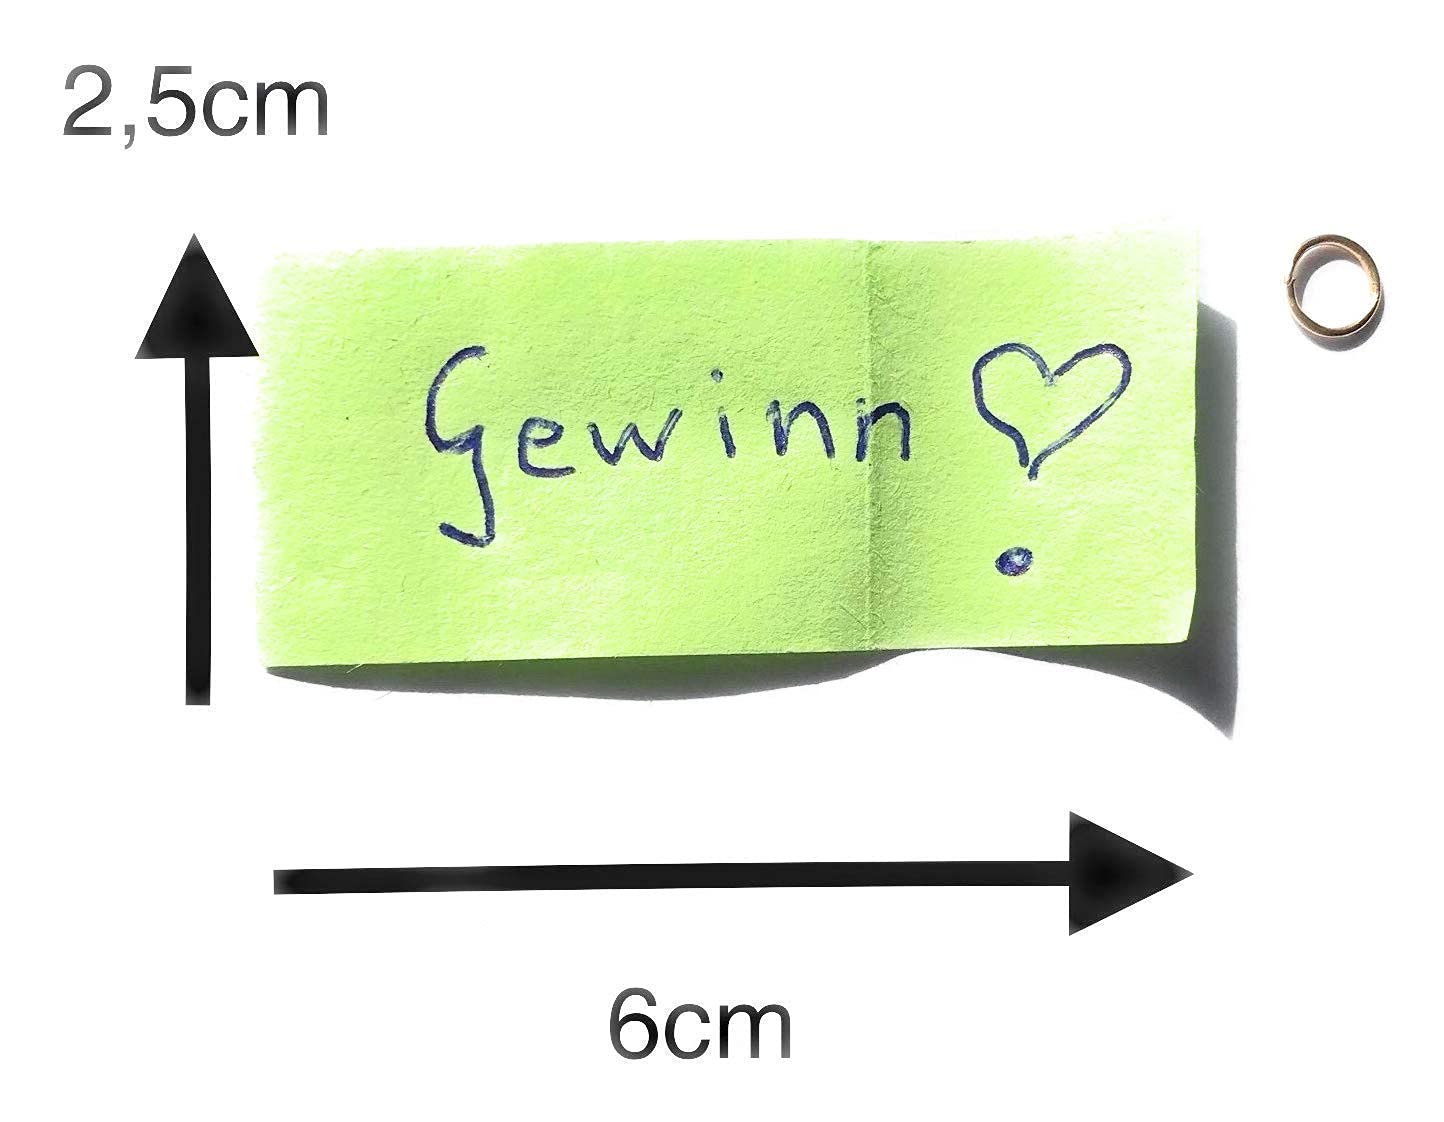 2,5cm
Gewinn
6cm